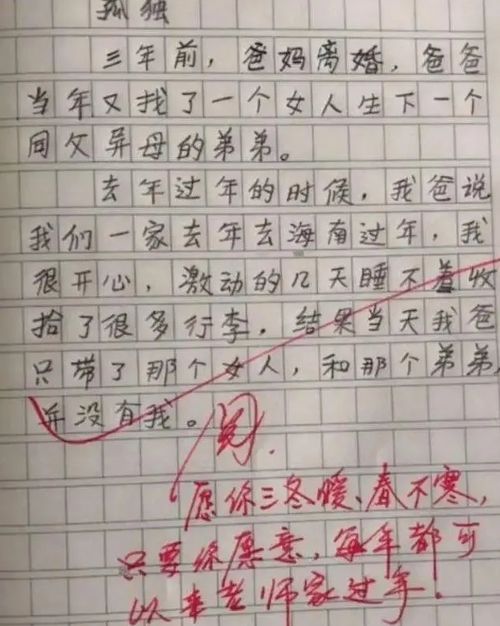 孤独
三年前，爸妈离婚，爸爸
当年又找了一个女人生下一个
同父异母的弟弟。
去年过年的时候，我爸说
我们一家去年去海南过年，我
很开心，激动的几天睡不着收
拾了很多行李，结果当天我爸
只带了那个女人，和那个弟弟，
并没有我。
阅.
愿你三冬暖、春不寒，
只要你愿意，每年都可
以来老师家过年！